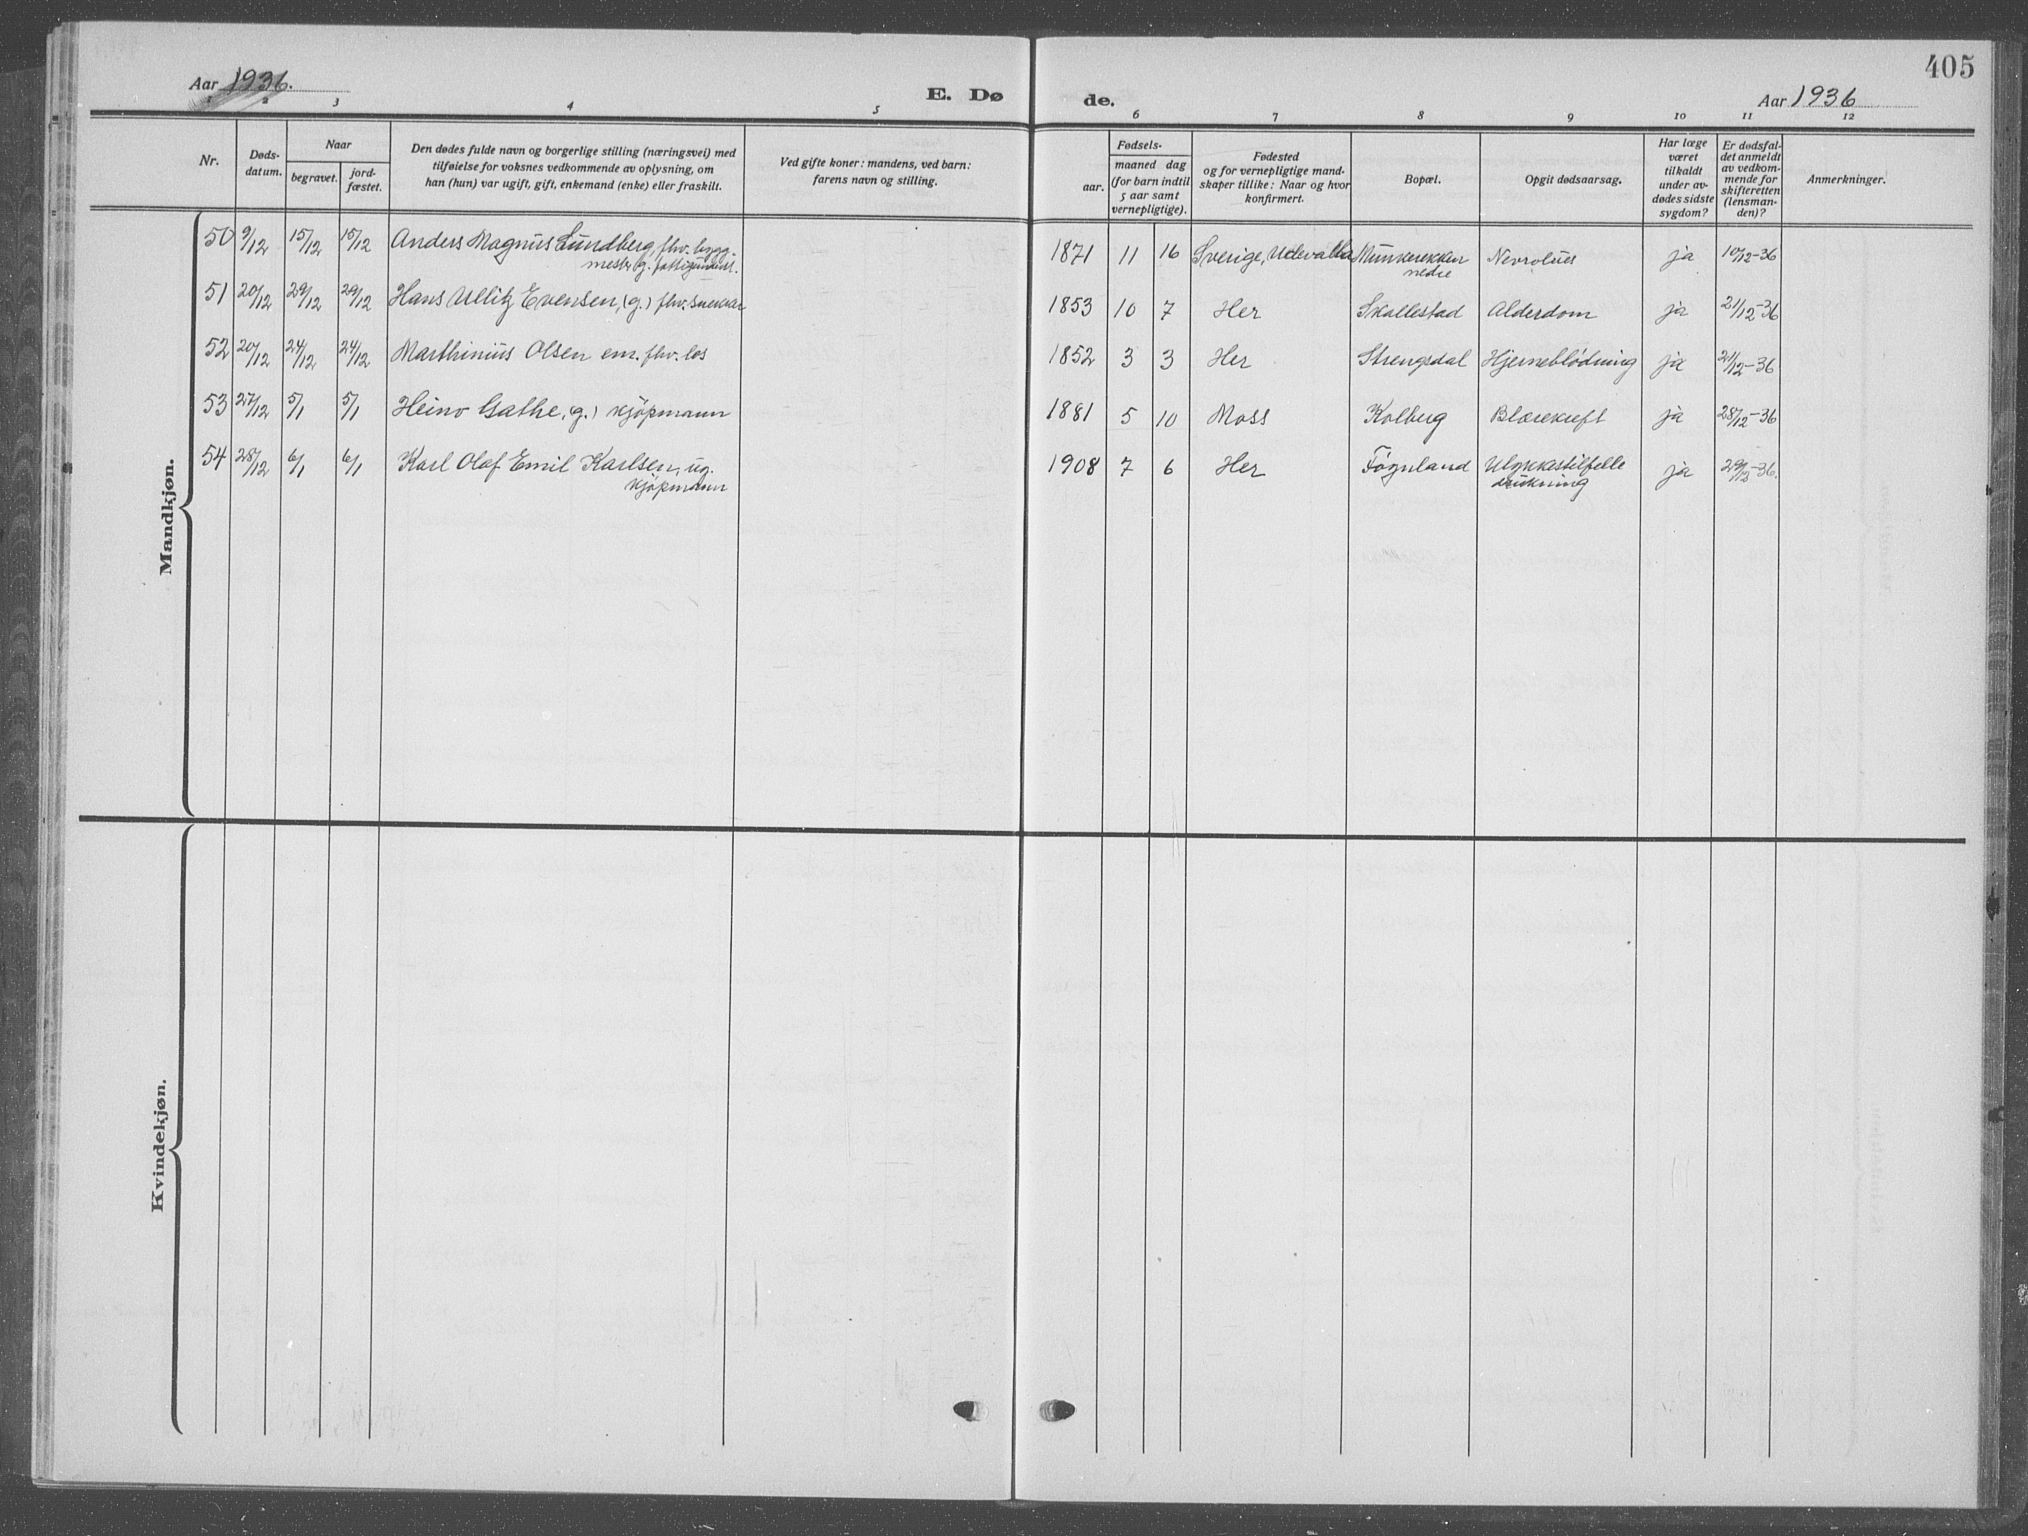 405
Aar 1936.
E. Dø
de.
Aar 1936
1 2 3 4 5 6 7 8 9 10 11 12
Nr.
Døds-
datum.
Naar
begravet.
jord-
fæstet.
Den dødes fulde navn og borgerlige stilling (næringsvei) med
tilføielse for voksnes vedkommende av oplysning, om
han (hun) var ugift, gift, enkemand (enke) eller fraskilt.
Ved gifte koner: mandens, ved barn:
farens navn og stilling.
Fødsels-
aar.
maaned dag
(for barn indtil
5 aar samt
vernepligtige).
Fødested
og for vernepligtige mand-
skaper tillike: Naar og hvor
konfirmert.
Bopæl.
Opgit dødsaarsag.
Har læge
været
tilkaldt
under av-
dødes sidste
sygdom?
Er dødsfal-
det anmeldt
av vedkom-
mende for
skifteretten
(lensman-
den)?
Anmerkninger.
Mandkjøn.
50 9/12 15/12 15/12 Anders Magnus Lundberg, fhv. bygg- 1871 11 16 Sverige, Udevalla Munkerekken ja 10/12-36
mester g. nedre
51 20/12 29/12 29/12 Hans Ullitz Evensen, (g.) fhv. snekker 1853 10 7 Her Skallestad Alderdom ja 21/12-36
52 20/12 24/12 24/12 Marthinius Olsen em. fhv. los 1852 3 3 Her Strengsdal Hjerneblødning ja 21/12-36
53 27/12 5/1 5/1 Heino Gathe, (g.) kjöpmann 1881 5 10 Moss Kolberg Blærekreft ja 28/12-36
54 28/12 6/1 6/1 Karl Olaf Emil Karlsen, ug. 1908 7 6 Her Føynland Ulykkestilfelle ja 29/12-36.
kjöpmann drukning
Kvindekjøn.